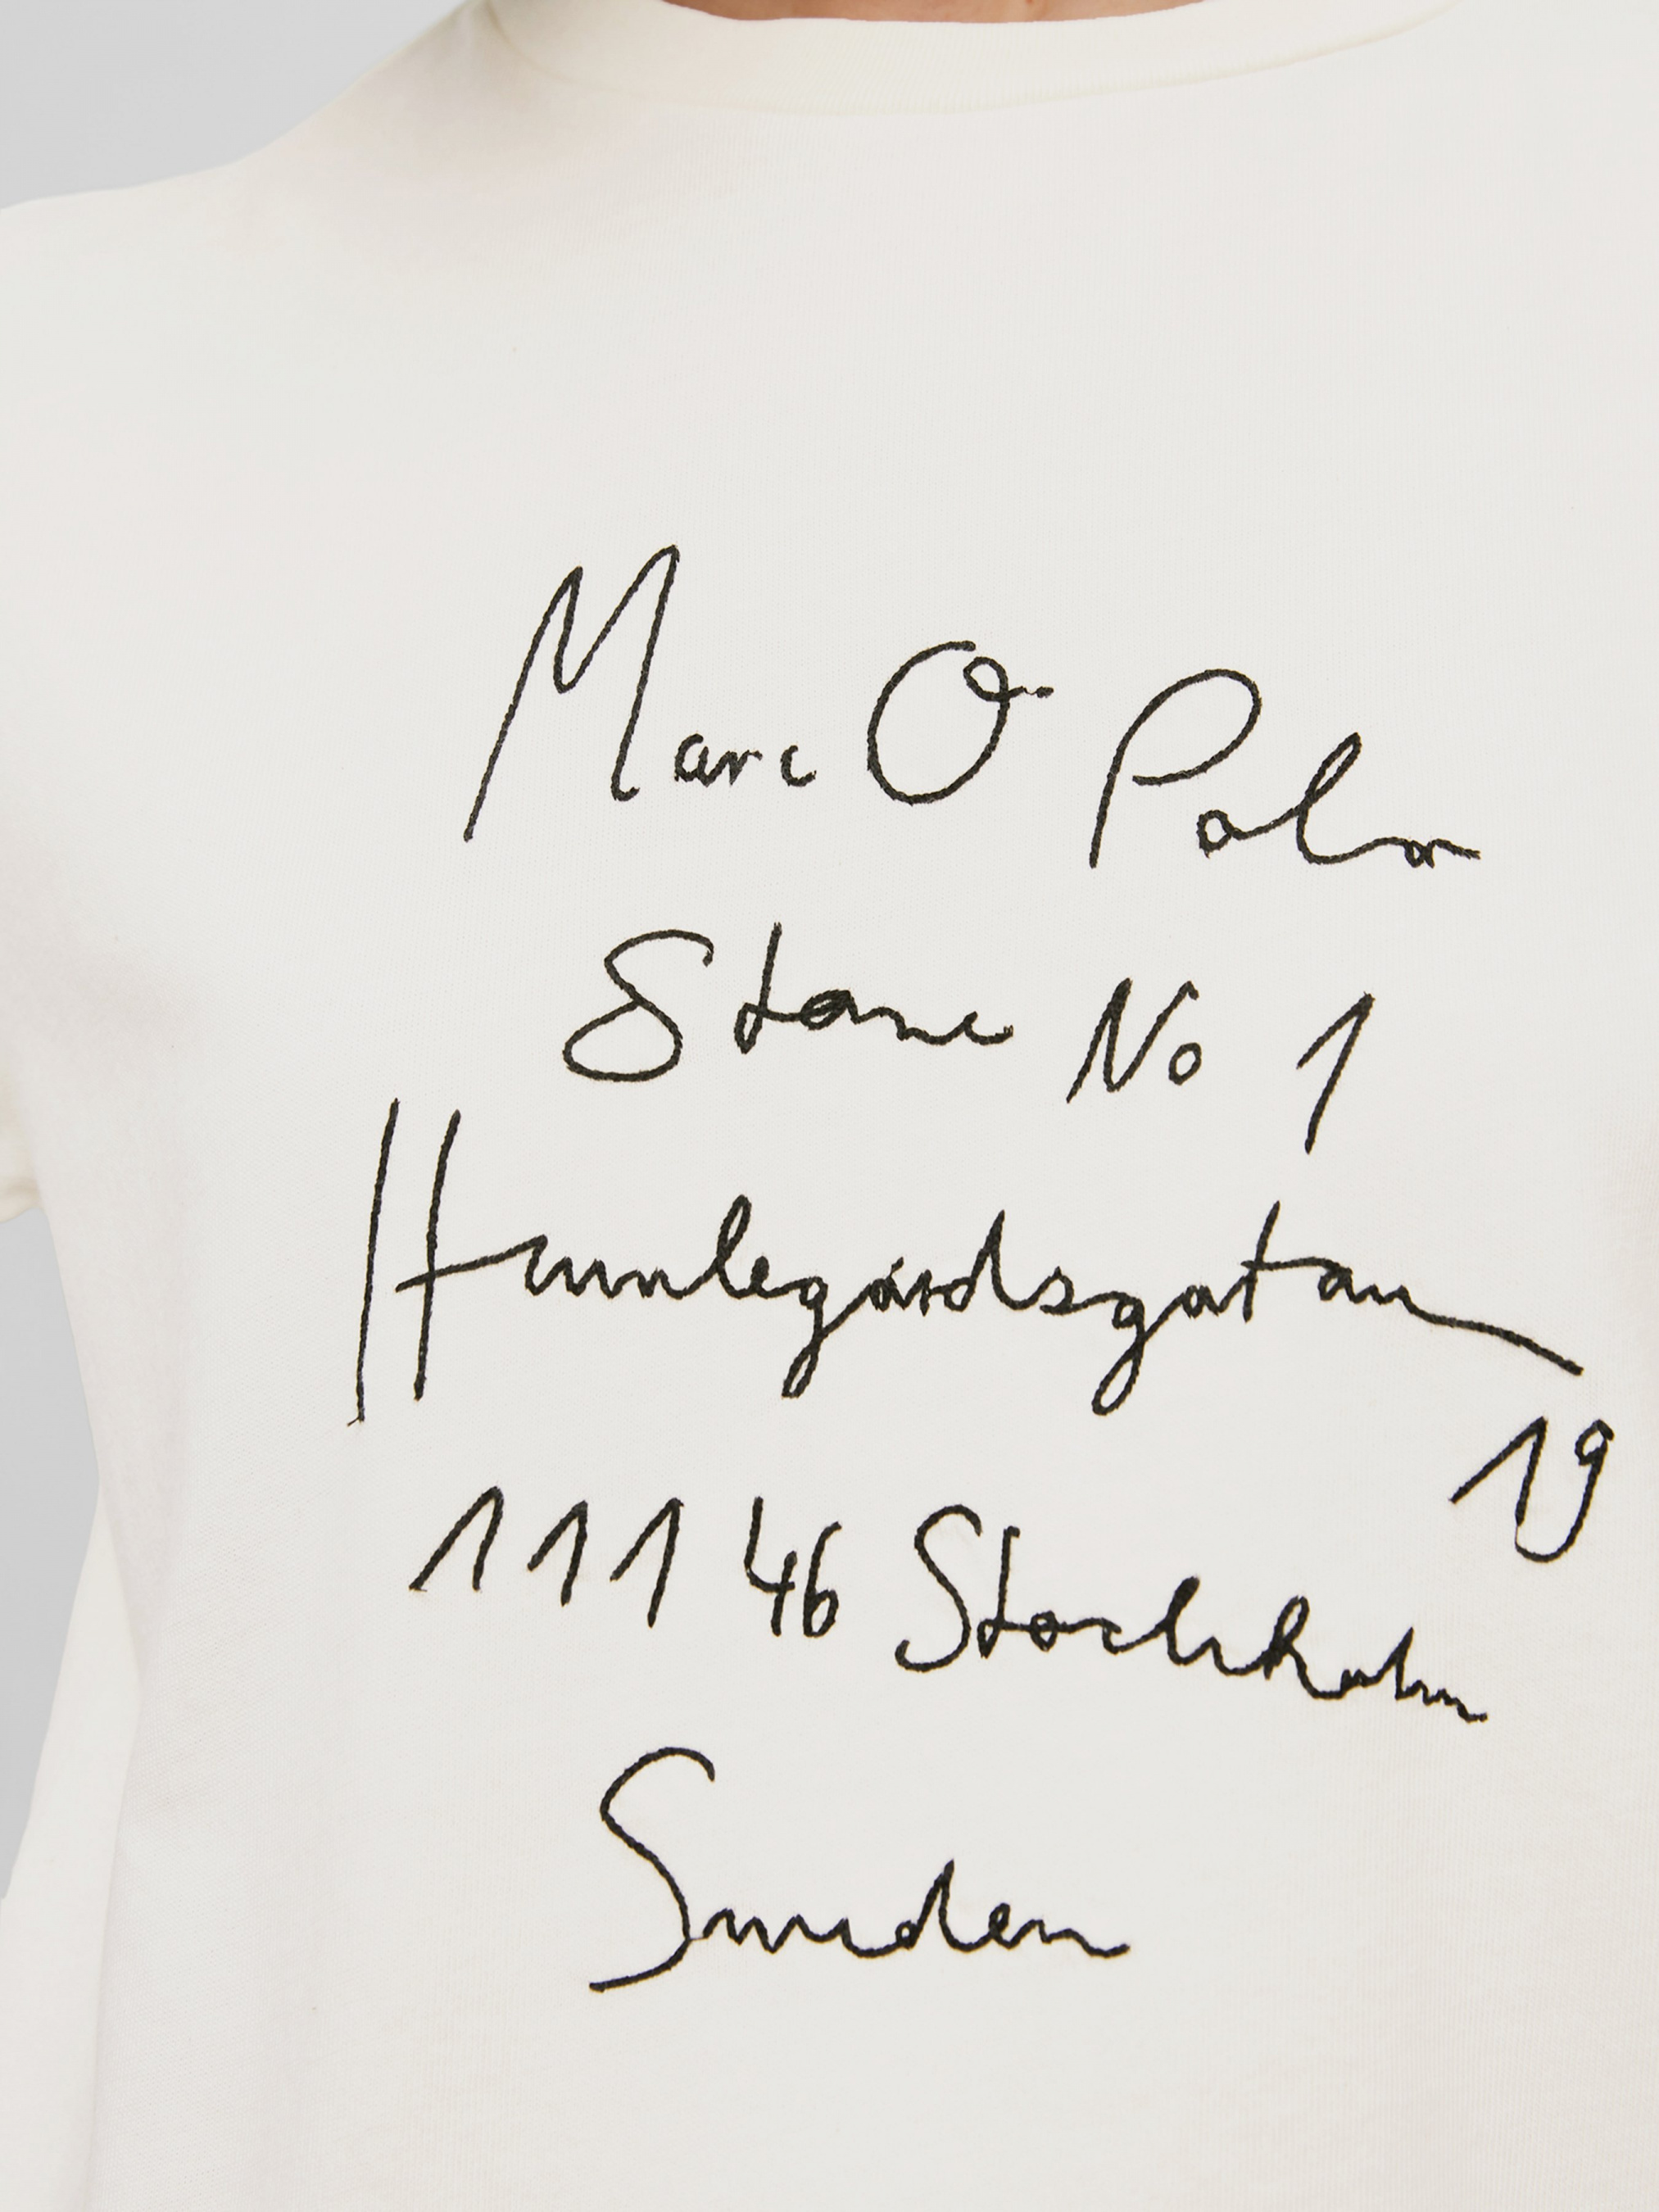 Marc O Polo
Store No 1
Humlegårdsgatan
19
111 46 Stockholm
Sweden